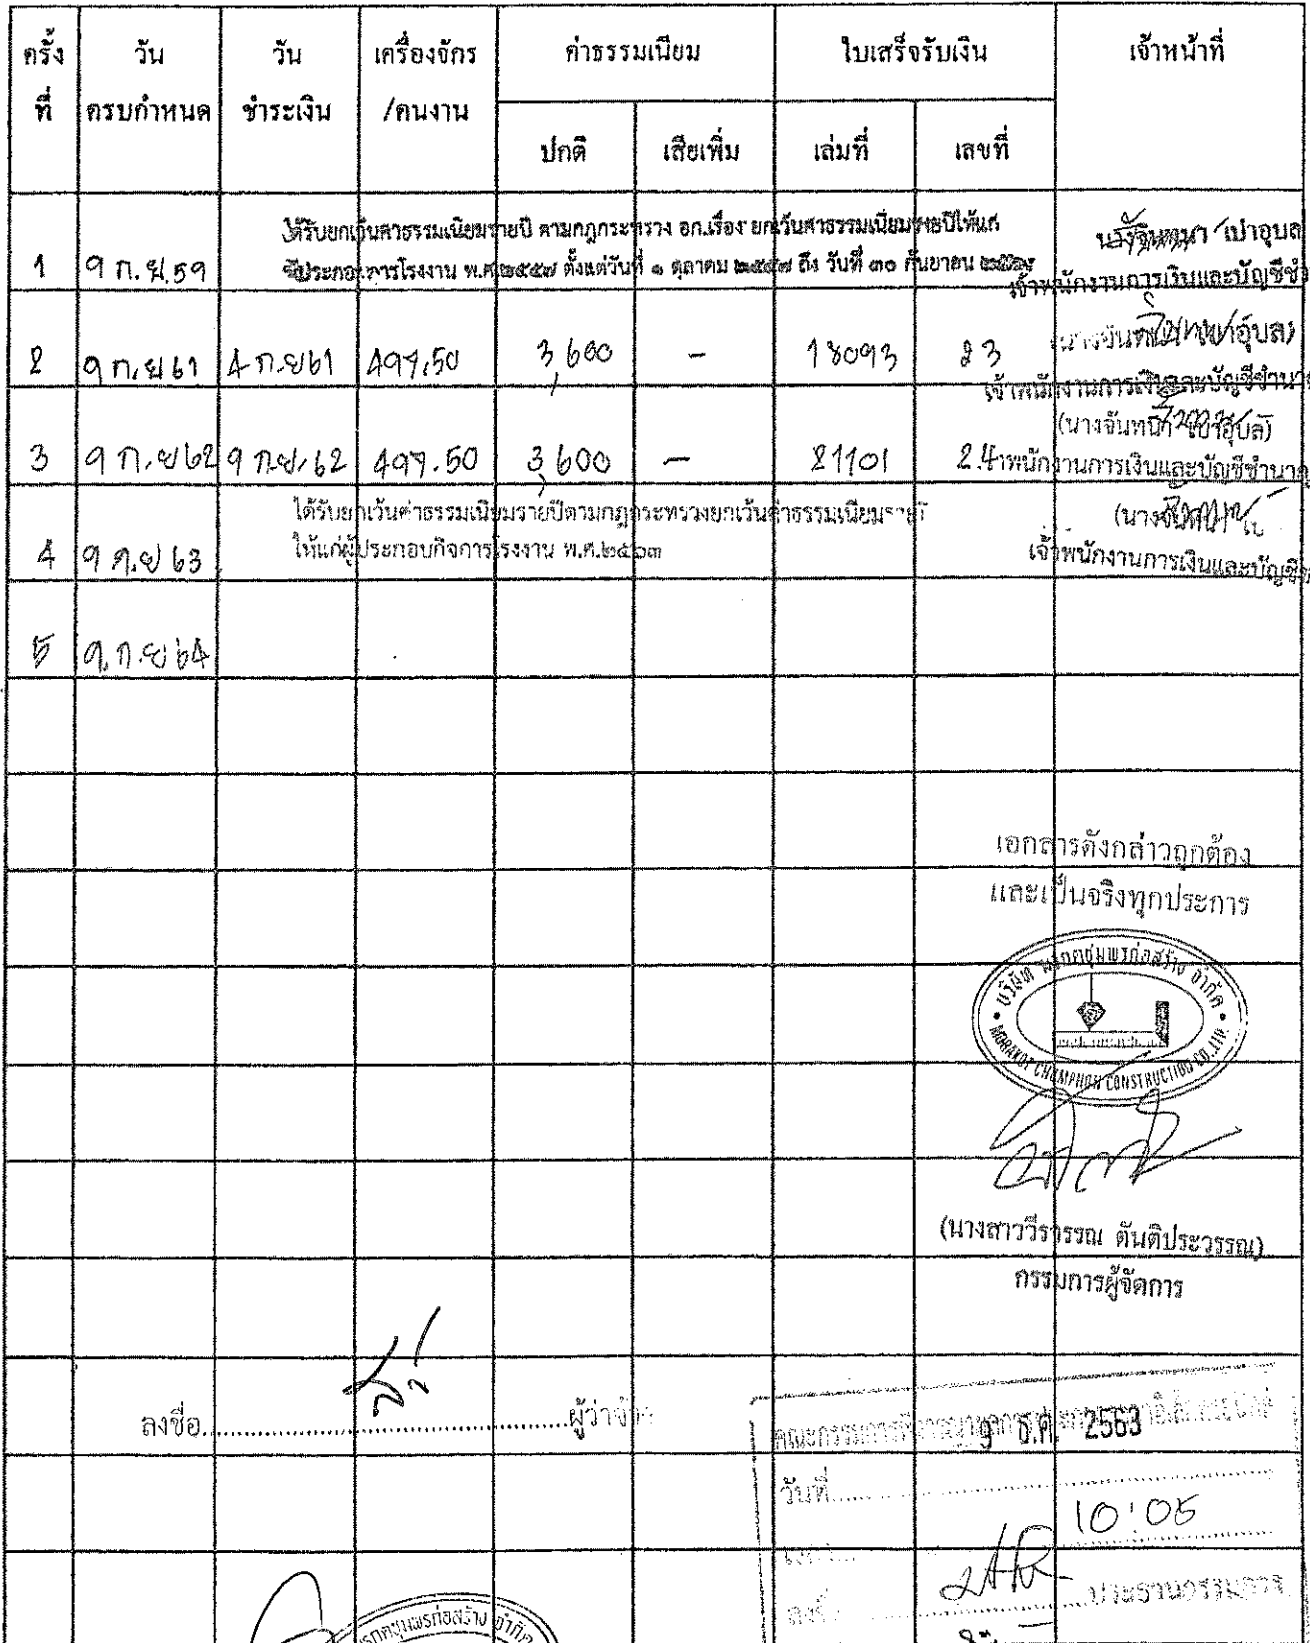 ครั้ง
ที่
วัน
ครบกำหนด
วัน
ชำระเงิน
เครื่องจักร
/คนงาน
ค่าธรรมเนียม
ใบเสร็จรับเงิน
เจ้าหน้าที่
ปกติ
เสียเพิ่ม
เล่มที่
เลขที่
ได้รับยกเว้นค่าธรรมเนียมรายปี ตามกฎกระทรวง อก.เรื่อง ยกเว้นค่าธรรมเนียมรายปีให้แก่
1 9 ก.ย.59 ผู้ประกอบการโรงงาน พ.ศ.๒๕๕๗ ตั้งแต่วันที่ ๑ ตุลาคม ๒๕๕๗ ถึง วันที่ ๓๐ กันยายน
เปาอุบล
เจ้าพนักงานการเงินและบัญชีชำ
2 9 ก.ย 61 4 ก.ย 61 497.50 3,600 - 18093 23
เจ้าพนักงานการเงินและบัญชีชำนา
3 9 ก.ย 62 9 ก.ย. 62 497.50 3,600 - 21101 24
(นางจันทนา เปาอุบล)
เจ้าพนักงานการเงินและบัญชีชำนา
ได้รับยกเว้นค่าธรรมเนียมรายปีตามกฎกระทรวงยกเว้นค่าธรรมเนียมรายปี
4 9 ก.ย 63 ให้แก่ผู้ประกอบกิจการโรงงาน พ.ศ.๒๕๖๓
(นาง
เจ้าพนักงานการเงินและบัญชี
5 9 ก.ย 64
เอกสารดังกล่าวถูกต้อง
และเป็นจริงทุกประการ
บริษัท มรกตชุมพรก่อสร้าง จำกัด
MORAKOT CHUMPHON CONSTRUCTION CO.,LTD.
(นางสาววีรวรรณ ตันติประวรรณ)
กรรมการผู้จัดการ
ลงชื่อ..........ผู้ว่าจ้าง
9 ธ.ค. 2563
วันที่..........
10:05
ลงชื่อ..........ประธานกรรมการ
มรกตชุมพรก่อสร้าง จำกัด